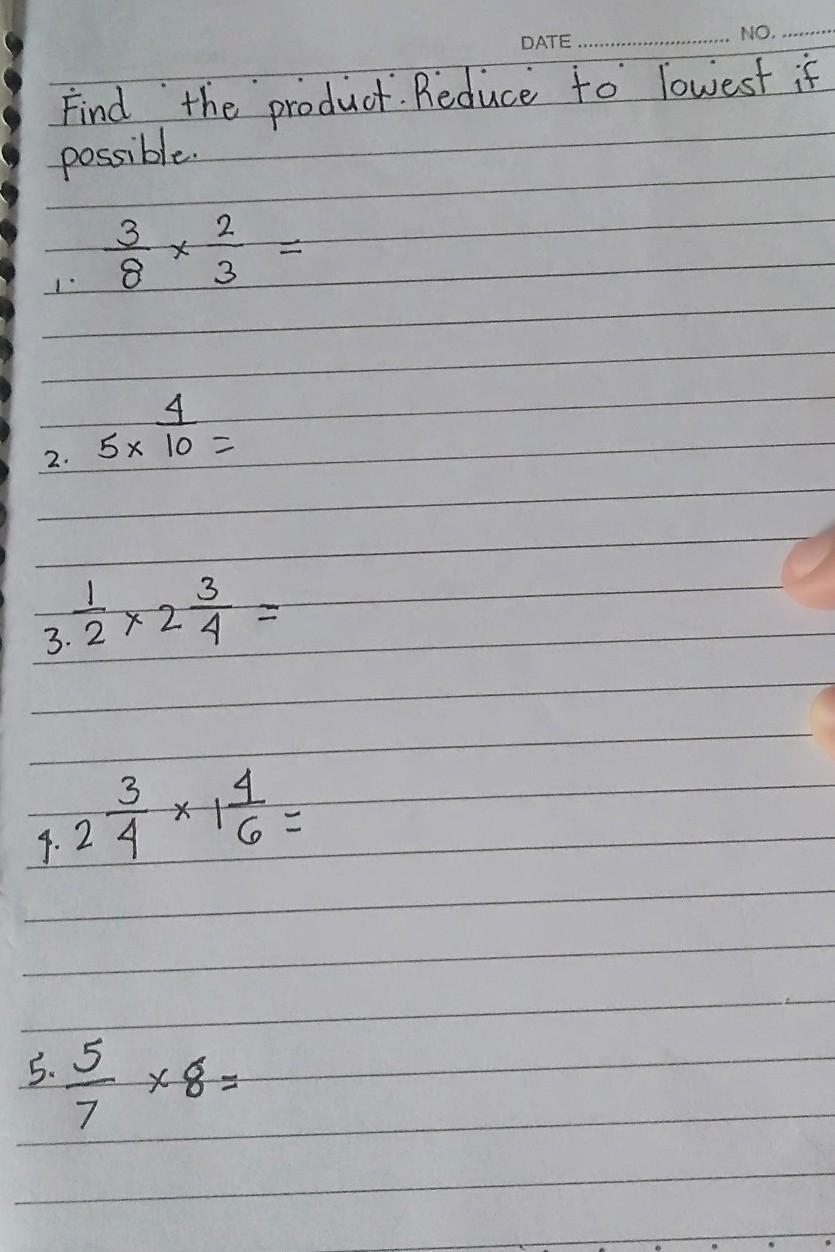 DATE ............................ NO. .........
Find the product. Reduce to lowest if
possible.
1. 3/8 × 2/3 =
2. 5 × 4/10 =
3. 1/2 × 2 3/4 =
4. 2 3/4 × 1 4/6 =
5. 5/7 × 8 =